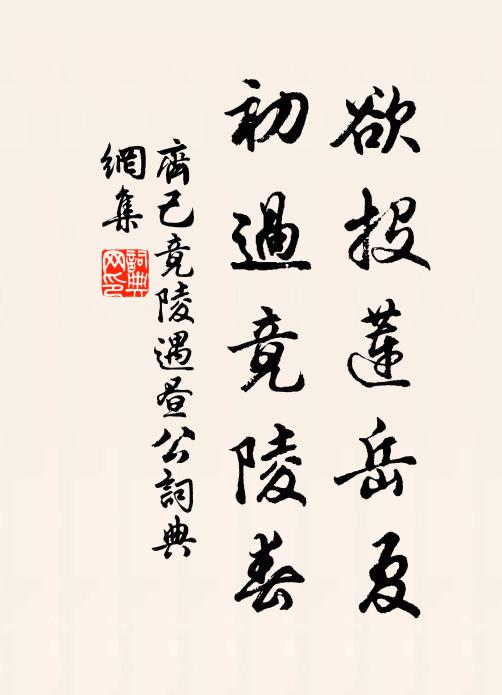 欲投蓮岳夏
初過竟陵春
齊己竟陵遇晝公詞典
網集
詞典網印